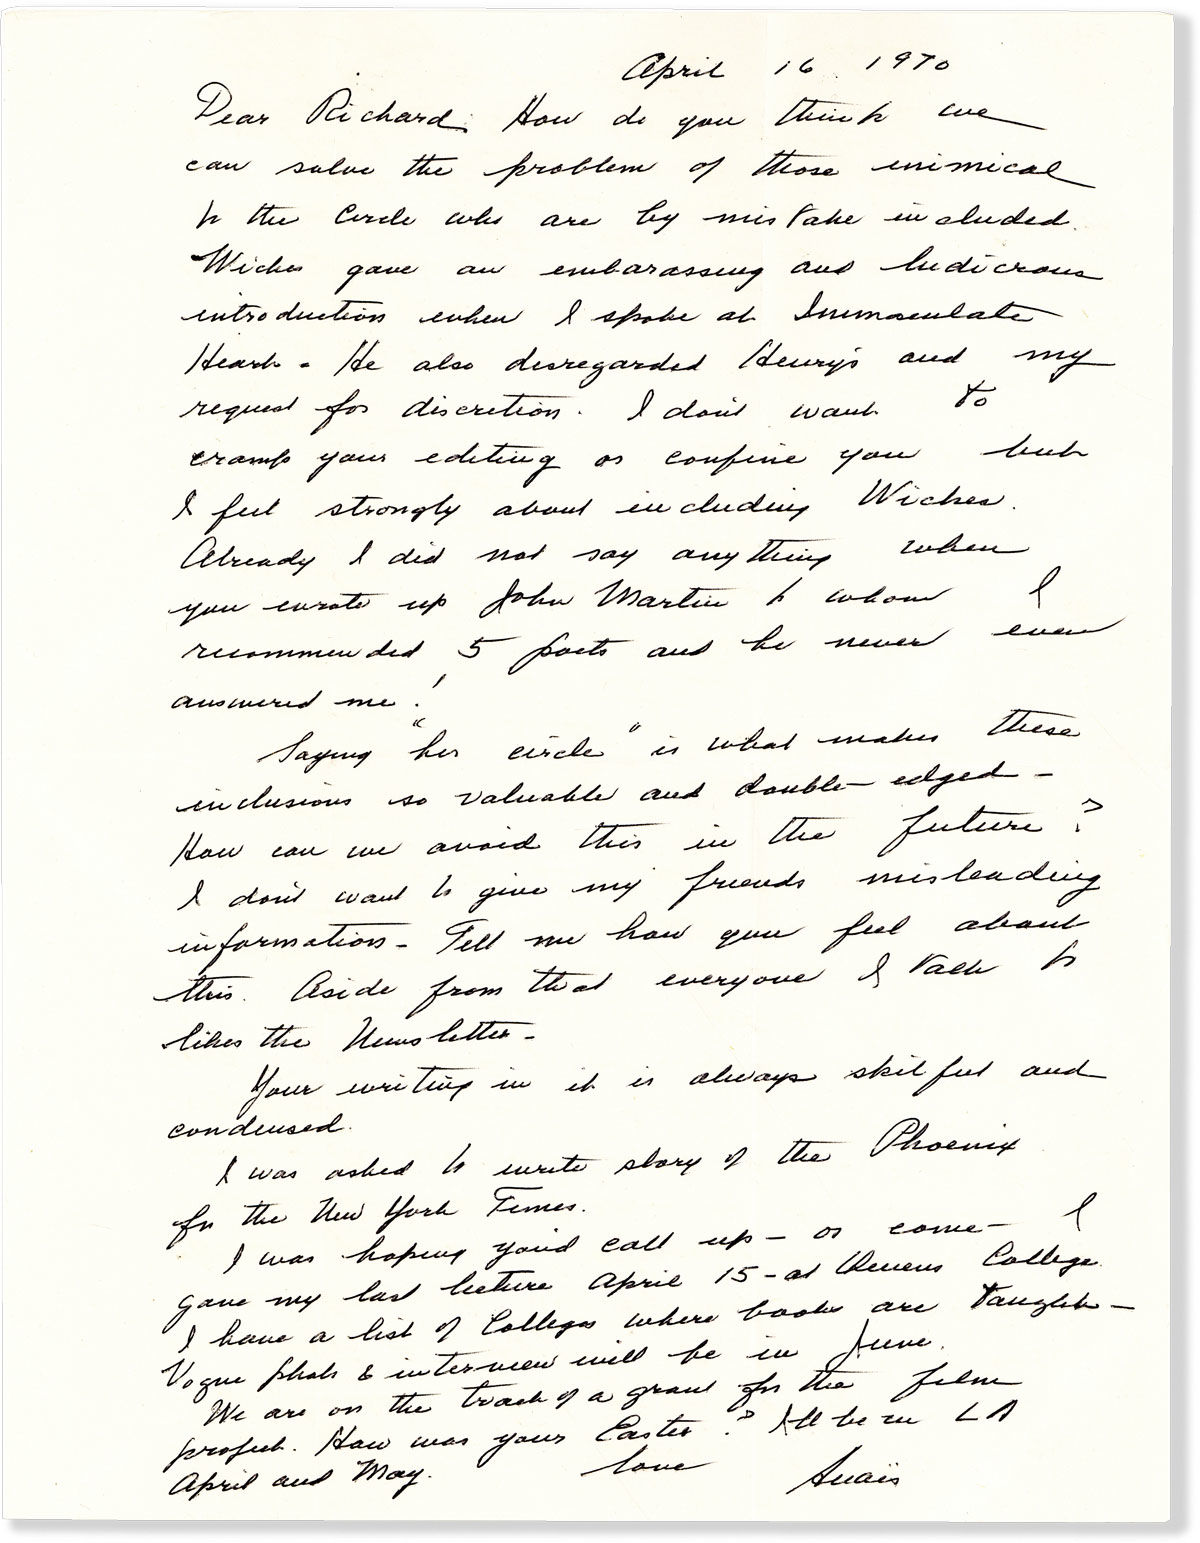 April 16 1970
Dear Richard: How do you think we
can solve the problem of those inimical
to the Circle who are by mistake included.
Wickes gave an embarassing and ludicrous
introduction when I spoke at Immaculate
Heart - He also disregarded Henry's and my
request for discretion. I don't want to
cramp your editing or confine you but
I feel strongly about including Wickes.
Already I did not say anything when
you wrote up John Martin to whom I
recommended 5 poets and he never even
answered me!
Saying "her circle" is what makes these
inclusions so valuable and double-edged -
How can we avoid this in the future?
I don't want to give my friends misleading
information - Tell me how you feel about
this. Aside from that everyone I talk to
likes the Newsletter -
Your writing in it is always skilful and
condensed.
I was asked to write story of the Phoenix
for the New York Times.
I was hoping you'd call up - or come - I
gave my last lecture April 15 - at Queens College.
I have a list of Colleges where books are taught -
Vogue photo & interview will be in June.
We are on the track of a grant for the film
project. How was your Easter? I'll be in LA
April and May. love Anaïs